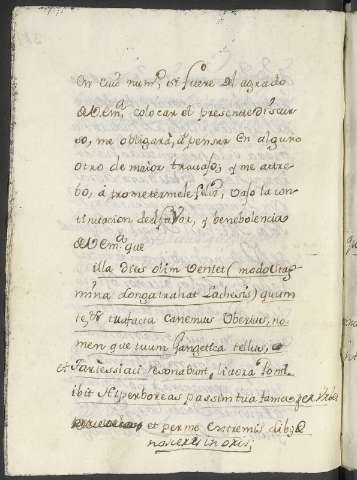 en cuió num.º, si fuere del agrado
de V. Em.ª colocar el presente discur-
so, me obligará, á pensar en alguno
otro de maior travajo, y me atre-
bo, á prometermele feliz, vajo la con-
tinuacion de su favor, y benebolencia
de V. Em.ª que
illa dies olim veniet (modo stag-
mina longa trahat Lachesis) quum
te, & tua facta canemus uberius, no-
men que tuum Gangetica tellus,
et Tartessiaci resonabunt, littora Ponti.
ibit Hyperboreas passim tua fama per urbes
et per me extremis
nosceris in oris;